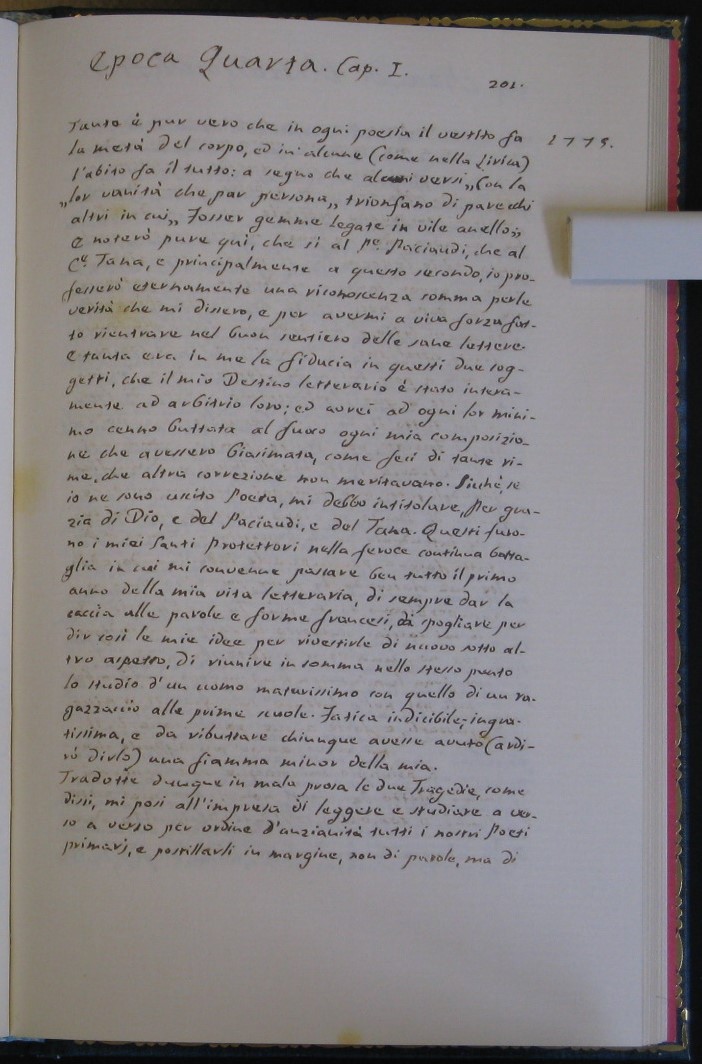 Epoca Quarta. Cap. I.
201.
Tanto è pur vero che in ogni poesia il vestito fa
1775.
la metà del corpo, ed in alcune (come nella Lirica)
l'abito fa il tutto: a segno che alcuni versi „Con la
„lor vanità che par persona„ trionfano di parecchi
altri in cui„ Fosser gemme legate in vile anello„;
E noterò pure qui, che sì al Pe. Paciaudi, che al
Ce. Tana, e principalmente a questo secondo, io pro-
fesserò eternamente una riconoscenza somma perle
verità che mi dissero, e per avermi a viva forza fat-
to rientrare nel buon sentiero delle sane lettere.
E tanta era in me la fiducia in questi due sog-
getti, che il mio Destino letterario è stato intera-
mente ad arbitrio loro; ed avrei ad ogni lor mini-
mo cenno buttata al fuoco ogni mia composizio-
ne che avessero biasimata, come feci di tante ri-
me, che altra correzione non meritavano. Sicchè, se
io ne sono uscito Poeta, mi debbo intitolare, Per gra-
zia di Dio, e del Paciaudi, e del Tana. Questi furo-
no i miei Santi Protettori nella feroce continua batta-
glia in cui mi convenne passare ben tutto il primo
anno della mia vita letteraria, di sempre dar la
caccia alle parole e forme francesi, di spogliare per
dir così le mie idee per rivestirle di nuovo sotto al-
tro aspetto, di riunire in somma nello stesso punto
lo studio d'un uomo maturissimo con quello di un ra-
gazzaccio alle prime scuole. Fatica indicibile, ingra-
tissima, e da ributtare chiunque avesse avuto (ardi-
rò dirlo) una fiamma minor della mia.
Tradotte dunque in mala prosa le due Tragedie, come
dissi, mi posi all'impresa di leggere e studiare a ver-
so a verso per ordine d'anzianità tutti i nostri Poeti
primarj, e postillarli in margine, non di parole, ma di